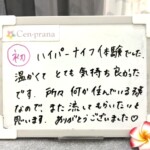 Cen·prana
初 ハイパーナイフ体験でした。
温かくて とても気持ち良かった
です。所々 何か住んでいる様
なので、また 流してもらいたいと
思います。ありがとうございました♡